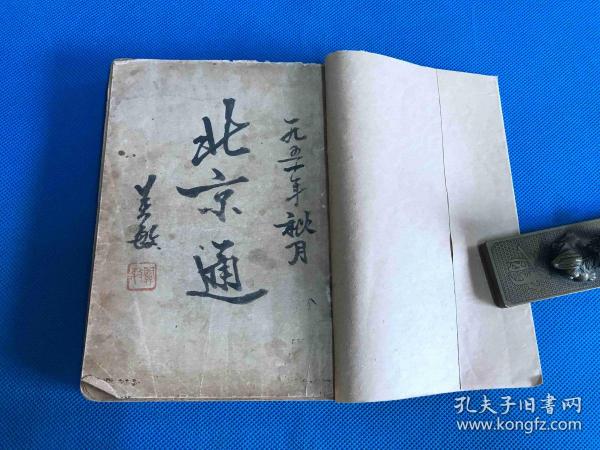 一九五一年 秋月
北京通
孔夫子旧书网
www.kongfz.com